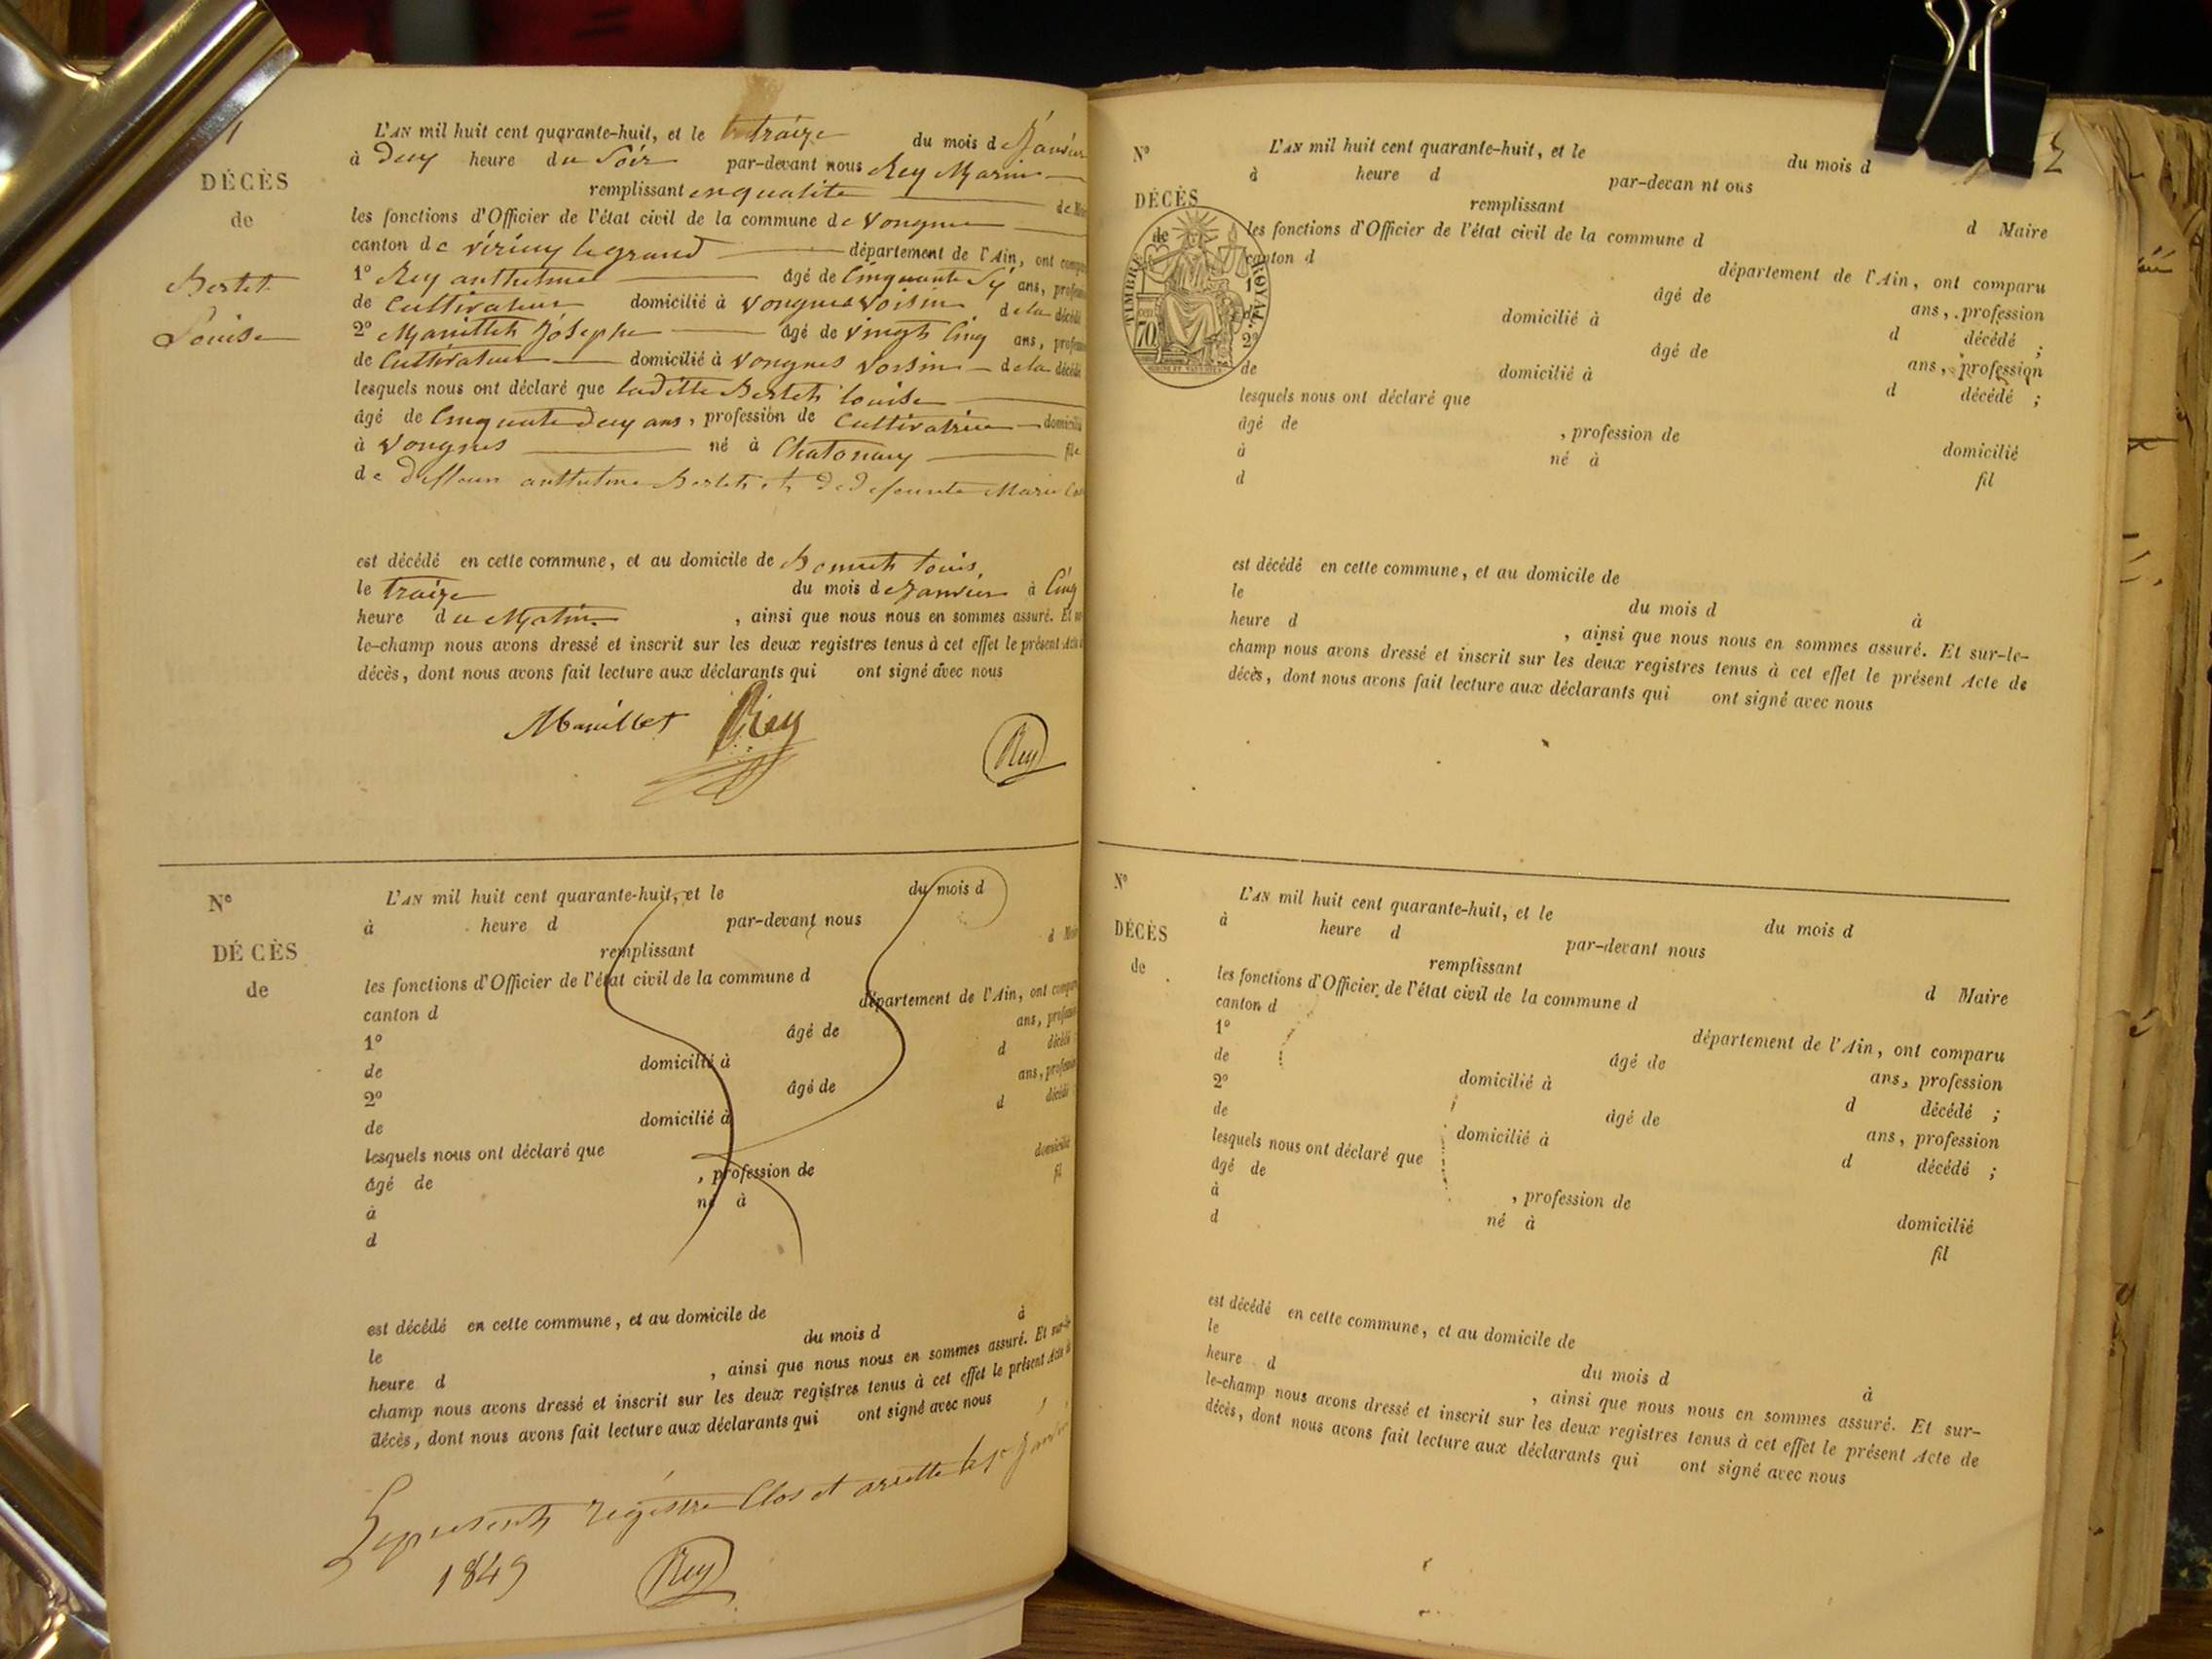 1
DÉCÈS
de
Bertet
Louise
L'AN mil huit cent quarante-huit, et le traize du mois de Janvier
à deux heure du Soir par-devant nous Rey Marin
remplissant enqualité de Mai
les fonctions d'Officier de l'état civil de la commune de Vongnes
canton de virieu legrand département de l'Ain, ont compa
1° Rey anthelme âgé de Cinquante Six ans, profess
de Cultivateur domicilié à Vongnes voisin de la décédé
2° Manillet Joseph âgé de vingt Cinq ans, profess
de Cultivateur domicilié à Vongnes voisin de la décédé
lesquels nous ont déclaré que laditte Bertet louise
âgé de Cinquante deux ans, profession de Cultivatrice domicilié
à Vongnes né à Chatonay file
de deffeun anthelme Bertet et de defeunte Marie
est décédé en cette commune, et au domicile de Bonnet louis
le traize du mois de Janvier à Cinq
heure du Matin , ainsi que nous nous en sommes assuré. Et
le-champ nous avons dressé et inscrit sur les deux registres tenus à cet effet le présent Acte
décès, dont nous avons fait lecture aux déclarants qui ont signé avec nous
Manillet Rey
Rey
N°
DÉCÈS
de
L'AN mil huit cent quarante-huit, et le du mois d
à heure d par-devant nous
remplissant d Mai
les fonctions d'Officier de l'état civil de la commune d
canton d département de l'Ain, ont compa
1° âgé de ans, profess
de domicilié à d décédé
2° âgé de ans, profess
de domicilié à d décédé
lesquels nous ont déclaré que
âgé de , profession de domicilié
à né à fil
d
est décédé en cette commune, et au domicile de
le du mois d à
heure d , ainsi que nous nous en sommes assuré. Et sur-le-
champ nous avons dressé et inscrit sur les deux registres tenus à cet effet le présent Acte de
décès, dont nous avons fait lecture aux déclarants qui ont signé avec nous
Le présent registre Clos et arretté le 1er Janvier
1849
Rey
2
N°
DÉCÈS
de
TIMBRE ROYAL
70
L'AN mil huit cent quarante-huit, et le du mois d
à heure d par-devan nt ous
remplissant d Maire
les fonctions d'Officier de l'état civil de la commune d
canton d département de l'Ain, ont comparu
1° âgé de ans, profession
de domicilié à d décédé ;
2° âgé de ans, profession
de domicilié à d décédé ;
lesquels nous ont déclaré que
âgé de , profession de domicilié
à né à fil
d
est décédé en cette commune, et au domicile de
le du mois d à
heure d , ainsi que nous nous en sommes assuré. Et sur-le-
champ nous avons dressé et inscrit sur les deux registres tenus à cet effet le présent Acte de
décès, dont nous avons fait lecture aux déclarants qui ont signé avec nous
N°
DÉCÈS
de
L'AN mil huit cent quarante-huit, et le du mois d
à heure d par-devant nous
remplissant d Maire
les fonctions d'Officier de l'état civil de la commune d
canton d département de l'Ain, ont comparu
1° âgé de ans, profession
de domicilié à d décédé ;
2° âgé de ans, profession
de domicilié à d décédé ;
lesquels nous ont déclaré que
âgé de , profession de domicilié
à né à fil
d
est décédé en cette commune, et au domicile de
le du mois d à
heure d , ainsi que nous nous en sommes assuré. Et sur-
le-champ nous avons dressé et inscrit sur les deux registres tenus à cet effet le présent Acte de
décès, dont nous avons fait lecture aux déclarants qui ont signé avec nous